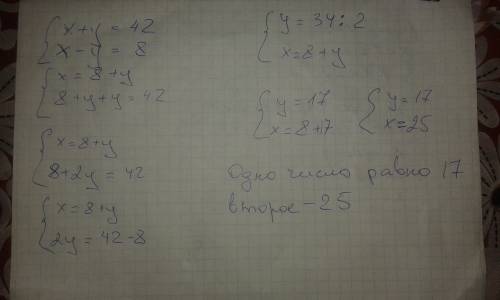 x+y = 42
x-y = 8
x = 8+y
8+y+y=42
x=8+y
8+2y = 42
x=8+y
2y = 42-8
y = 34:2
x=8+y
y=17
x=8+17
y=17
x=25
Одно число равно 17
второе-25